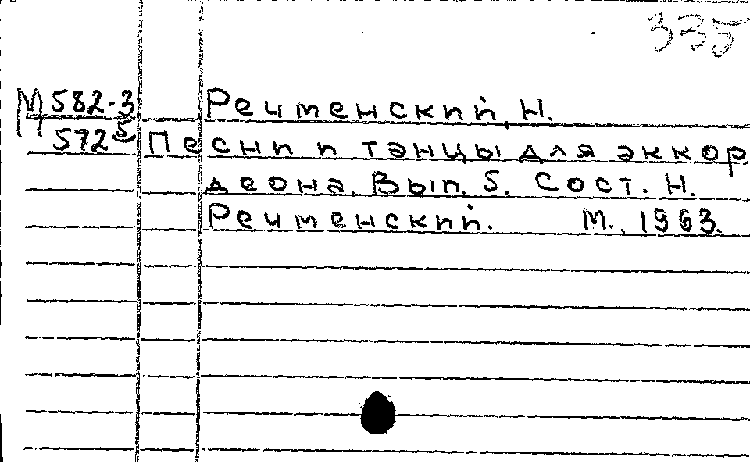 335
М 582-3 Речменский, Н.
572 5 Песни и танцы для аккор
деона. Вып. 5. Сост. Н.
Речменский. М., 1963.